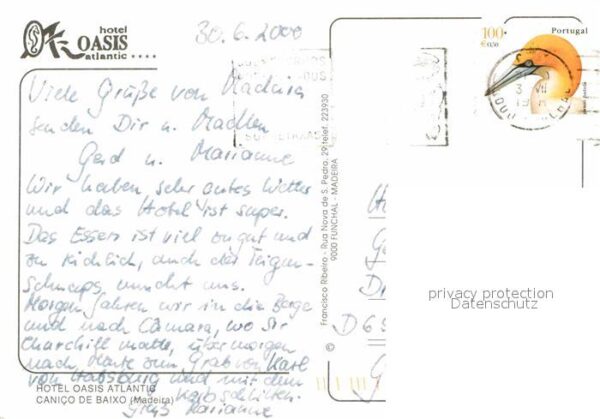 hotel
OASIS
atlantic
30.6.2000
Viele Grüße von Madeira
senden Dir u. Madlen
Gerd u. Marianne
Wir haben sehr gutes Wetter
und das Hotel ist super.
Das Essen ist viel zu gut und
zu reichlich, auch der Feigen-
schnaps mundet uns.
Morgen fahren wir in die Berge
und nach Câmara, wo Sir
Churchill malte, übermorgen
nach Monte zum Grab von Karl
von Habsburg und mit dem
Korbschlitten.
Gruß Marianne
HOTEL OASIS ATLANTIC
CANIÇO DE BAIXO (Madeira)
© Francisco Ribeiro - Rua Nova de S. Pedro, 29 telef. 223930
9000 FUNCHAL - MADEIRA
100
€0,50
Portugal
3 VII
D 69
privacy protection
Datenschutz